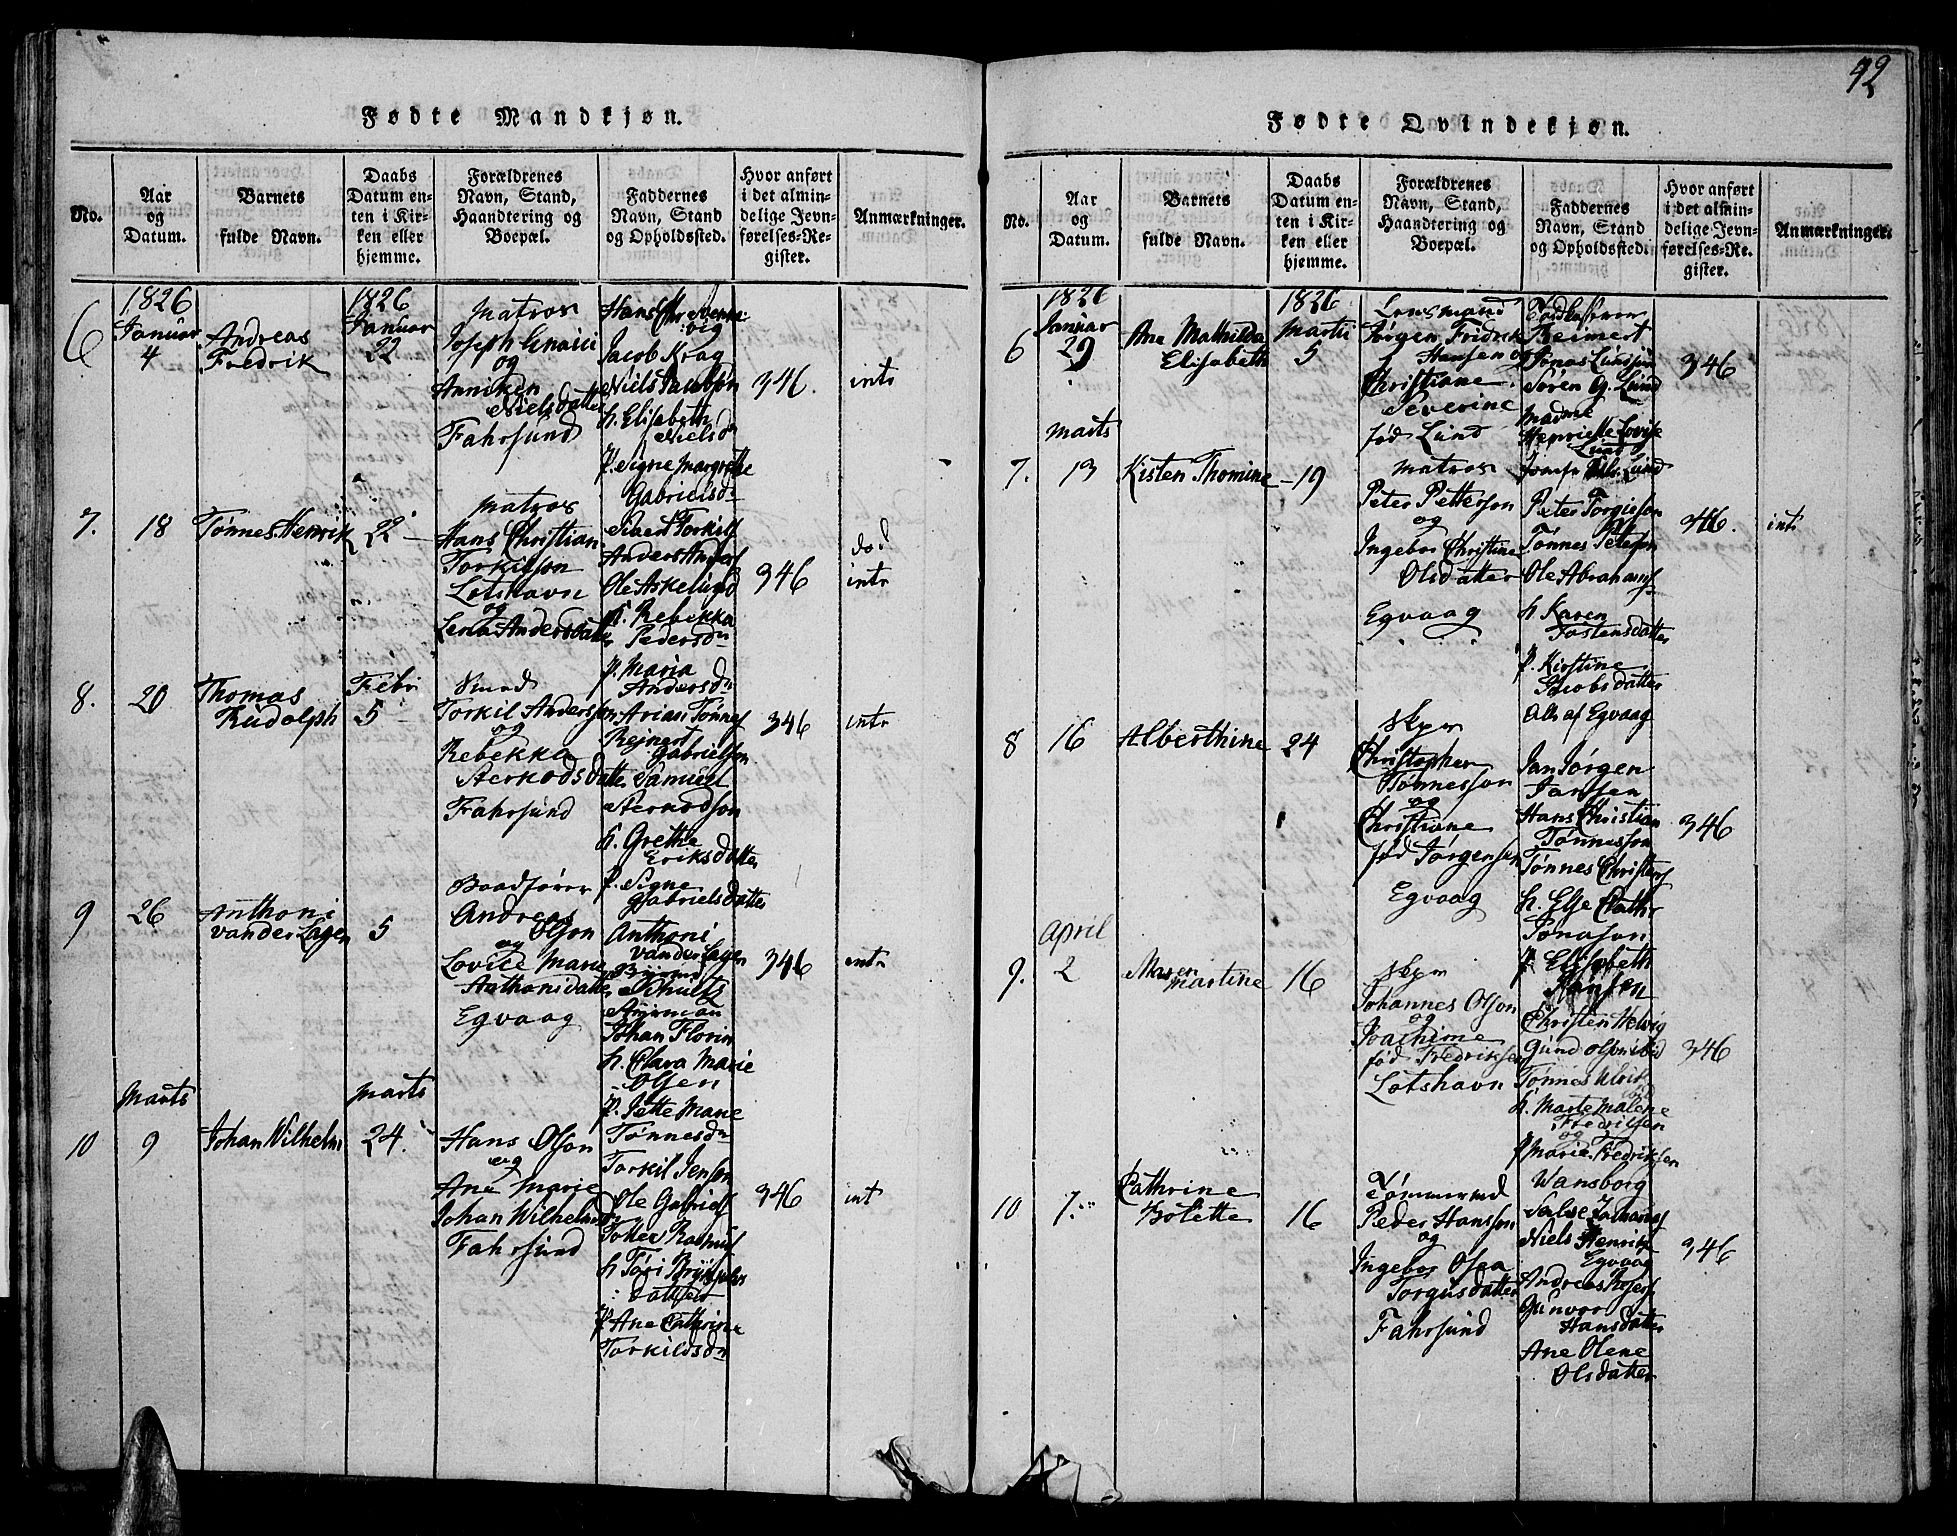 42
Fødte Mandkjøn.
No.
Aar
og
Datum.
Barnets
fulde Navn.
Daabs
Datum en-
ten i Kir-
ken eller
hjemme.
Forældrenes
Navn, Stand,
Haandtering og
Boepæl.
Faddernes
Navn, Stand
og Opholdssted.
Hvor anført
i det almin-
delige Jevn-
førelses-Re-
gister.
Anmærkninger.
6
1826
Januar
4
Andreas
Fredrik
1826
Januar
22
Matros
Joseph
og
Anniken
Nielsdatter
Fahrsund
Hans Chr
Jacob Krag
Niels Jacobson
h. Elisabeth
Nielsd
P. Signe Margrethe
Gabrielsd
346.
intr
7.
18
Tønnes Henrik
22
Matros
Hans Christian
Torkilson
Lotshavn
og
Lena Andersdatter
Torkils
Anders
Ole Askelund
h. Rebekka
Pedersd
P. Maria
Andersd
346
død
intr
8.
20
Thomas
Rudolph
Febr
5
Smed
Torkil Anderson
og
Rebekka
Sterkodsdatter
Fahrsund
Arian Tønnes
Rejnert
Gabrielson
Samuel
Sterkodson
h. Grethe
Eriksdatter
P. Signe
Gabrielsdatter
346
intr
9
26
Anthoni
van der Lagen
5
Baadfører
Andreas
Olson
og
Lovice Marie
Anthonisdatter
Egvaag
Anthoni
van der Lagen
Schults
Styrman
Johan Florin
h. Clara Marie
Olsen
P. Jette Marie
Tønnesd
346
intr
Marts
10
9
Johan Wilhelm
Marts
24.
Hans Olson
og
Ane Marie
Johan Wilhelmsd
Fahrsund
Torkil Jenson
Ole Gabriels
Rasmus
h Tori
datter
P Ane Cathrine
Torkildsd
346
int
Fødte Qvindekjøn.
No.
Aar
og
Datum.
Barnets
fulde Navn.
Daabs
Datum en-
ten i Kir-
ken eller
hjemme.
Forældrenes
Navn, Stand,
Haandtering og
Boepæl.
Faddernes
Navn, Stand
og Opholdssted.
Hvor anført
i det almin-
delige Jevn-
førelses-Re-
gister.
Anmærkninger.
6
1826
Januar
29
Ane Mathilda
Elisabeth
1826
Martii
5
Lensmand
Jørgen Fridrik
Hansen og
Christiane
Severine
fød Lund
Reimert
Jonas Lund
Søren G. Lund
Madme
Henriette Lovise
Lund
Lund
346
Marts
7.
13
Kisten Thomine
19
Matros
Peter Petterson
og
Ingebor Christine
Olsdatter
Egvaag
Peter Torgieson
Tønnes Peterson
Ole Abrahams
h Karen
Tostensdatter
P. Kirstine
Jacobsdatter
Alle af Egvaag
346.
intr
8
16
Alberthine
24
Skpr
Christopher
Tønnesson
og
Christiane
fød Jørgensen
Egvaag
Jan Jørgen
Jansen
Hans Christian
Tønnesson
Tønnes Christens
h. Else Cathr
Tønnson
P Elisabeth
Hansen
346
April
9.
2
Maren
Martine
16
Skpr
Johannes Olson
og
Joachime
fød Fredriksen
Lotshavn
Christen Helvig
Gund Olson
Tønnes Ulrik
h. Marte Malene
Fredriksen
og
P Marie Fredriksen
346
10
7.
Cathrine
Bolette
16
Tømmermd
Peder Hansson
og
Ingebor Olea
Torgusdatter
Fahrsund
Wansborg
Niels Henrik
Egvaag
Andreas
Gunvor
Hansdatter
Ane Olene
Olsdatter
346